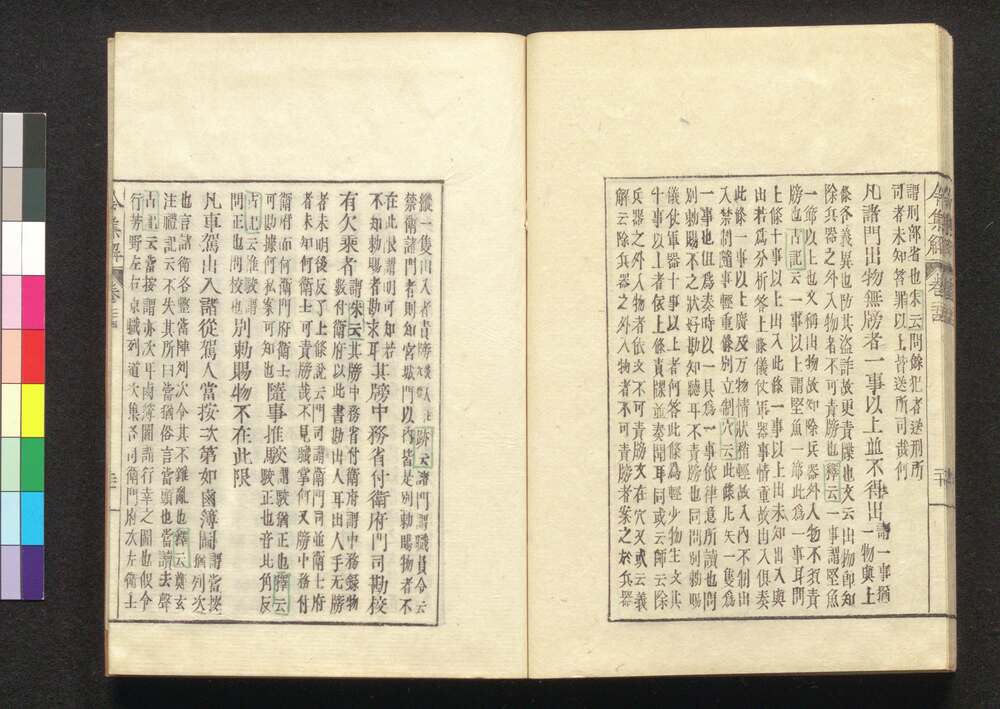 謂刑部省也朱云問餘犯者送刑所
司者未知答罪以上皆送所司哉何
凡諸門出物無牓者一事以上並不得出 謂一事猶一物與上
條各義異也防其盜詐故更責牓也文云出物即知
除兵器之外入物者不可責牓也釋云一事謂堅魚
一節以上也文稱出物故知除兵器外人物不須責
牓也古記云一事以上謂堅魚一節此爲一事耳問
上條十事以上出入此條一事以上出未知出入與
出若爲分析答上條儀仗軍器事情重故出入俱奏
此條一事以上廣及万物情狀稍輕故入內不制出
入禁制隨事輕重條別立制穴云此條此矢一隻爲
一事也但爲奏時以一具爲一事依律意所讀也問
別勅賜不之狀好勘知聽耳不責牓也同問別勅賜
儀仗軍器十事以上者何答此條爲輕少物生文其
十事以上者依上條責牓並奏聞耳同或云師云除
兵器之外入物者依文不可責牓文在穴又或云義
解云除兵器之外入物者不可責牓者案之於兵器
令集解 卷 三十
縱一隻出入者責牓 跡云諸門謂職員令云
禁衛諸門者則知宮城門以內皆是別勅賜物者不
在此限謂明可知若其牓中務省付衛府門司勘校
不知勅賜者勘求耳
有欠乘者 謂朱云其牓中務省付衛府謂中務錄物
數付衛府以此書勘出人耳出人手无牓
者未明後反了上條說云門司謂衛門司並衛士府
者未知何衛士可責牓哉不見職掌何又牓中務付
衛府而何衛門府衛士隨事推駮 謂駮猶正也釋云
可勘據何私案可知也 駮正也音北角反
古記云推駮謂
問正也問挍也別勅賜物不在此限
凡車駕出入諸從駕人當按次第如鹵簿圖 謂當按猶列次
也言諸衛各整當陣列次令其不雜亂也釋云鄭玄
注禮記云不失其所曰當猶俗言當頭也當讀去聲
古記云當按謂亦次耳鹵簿圖謂行幸之圖也假令
行芳野左右京職列道次集各司衛門府次左衛士
令集解 卷 三十